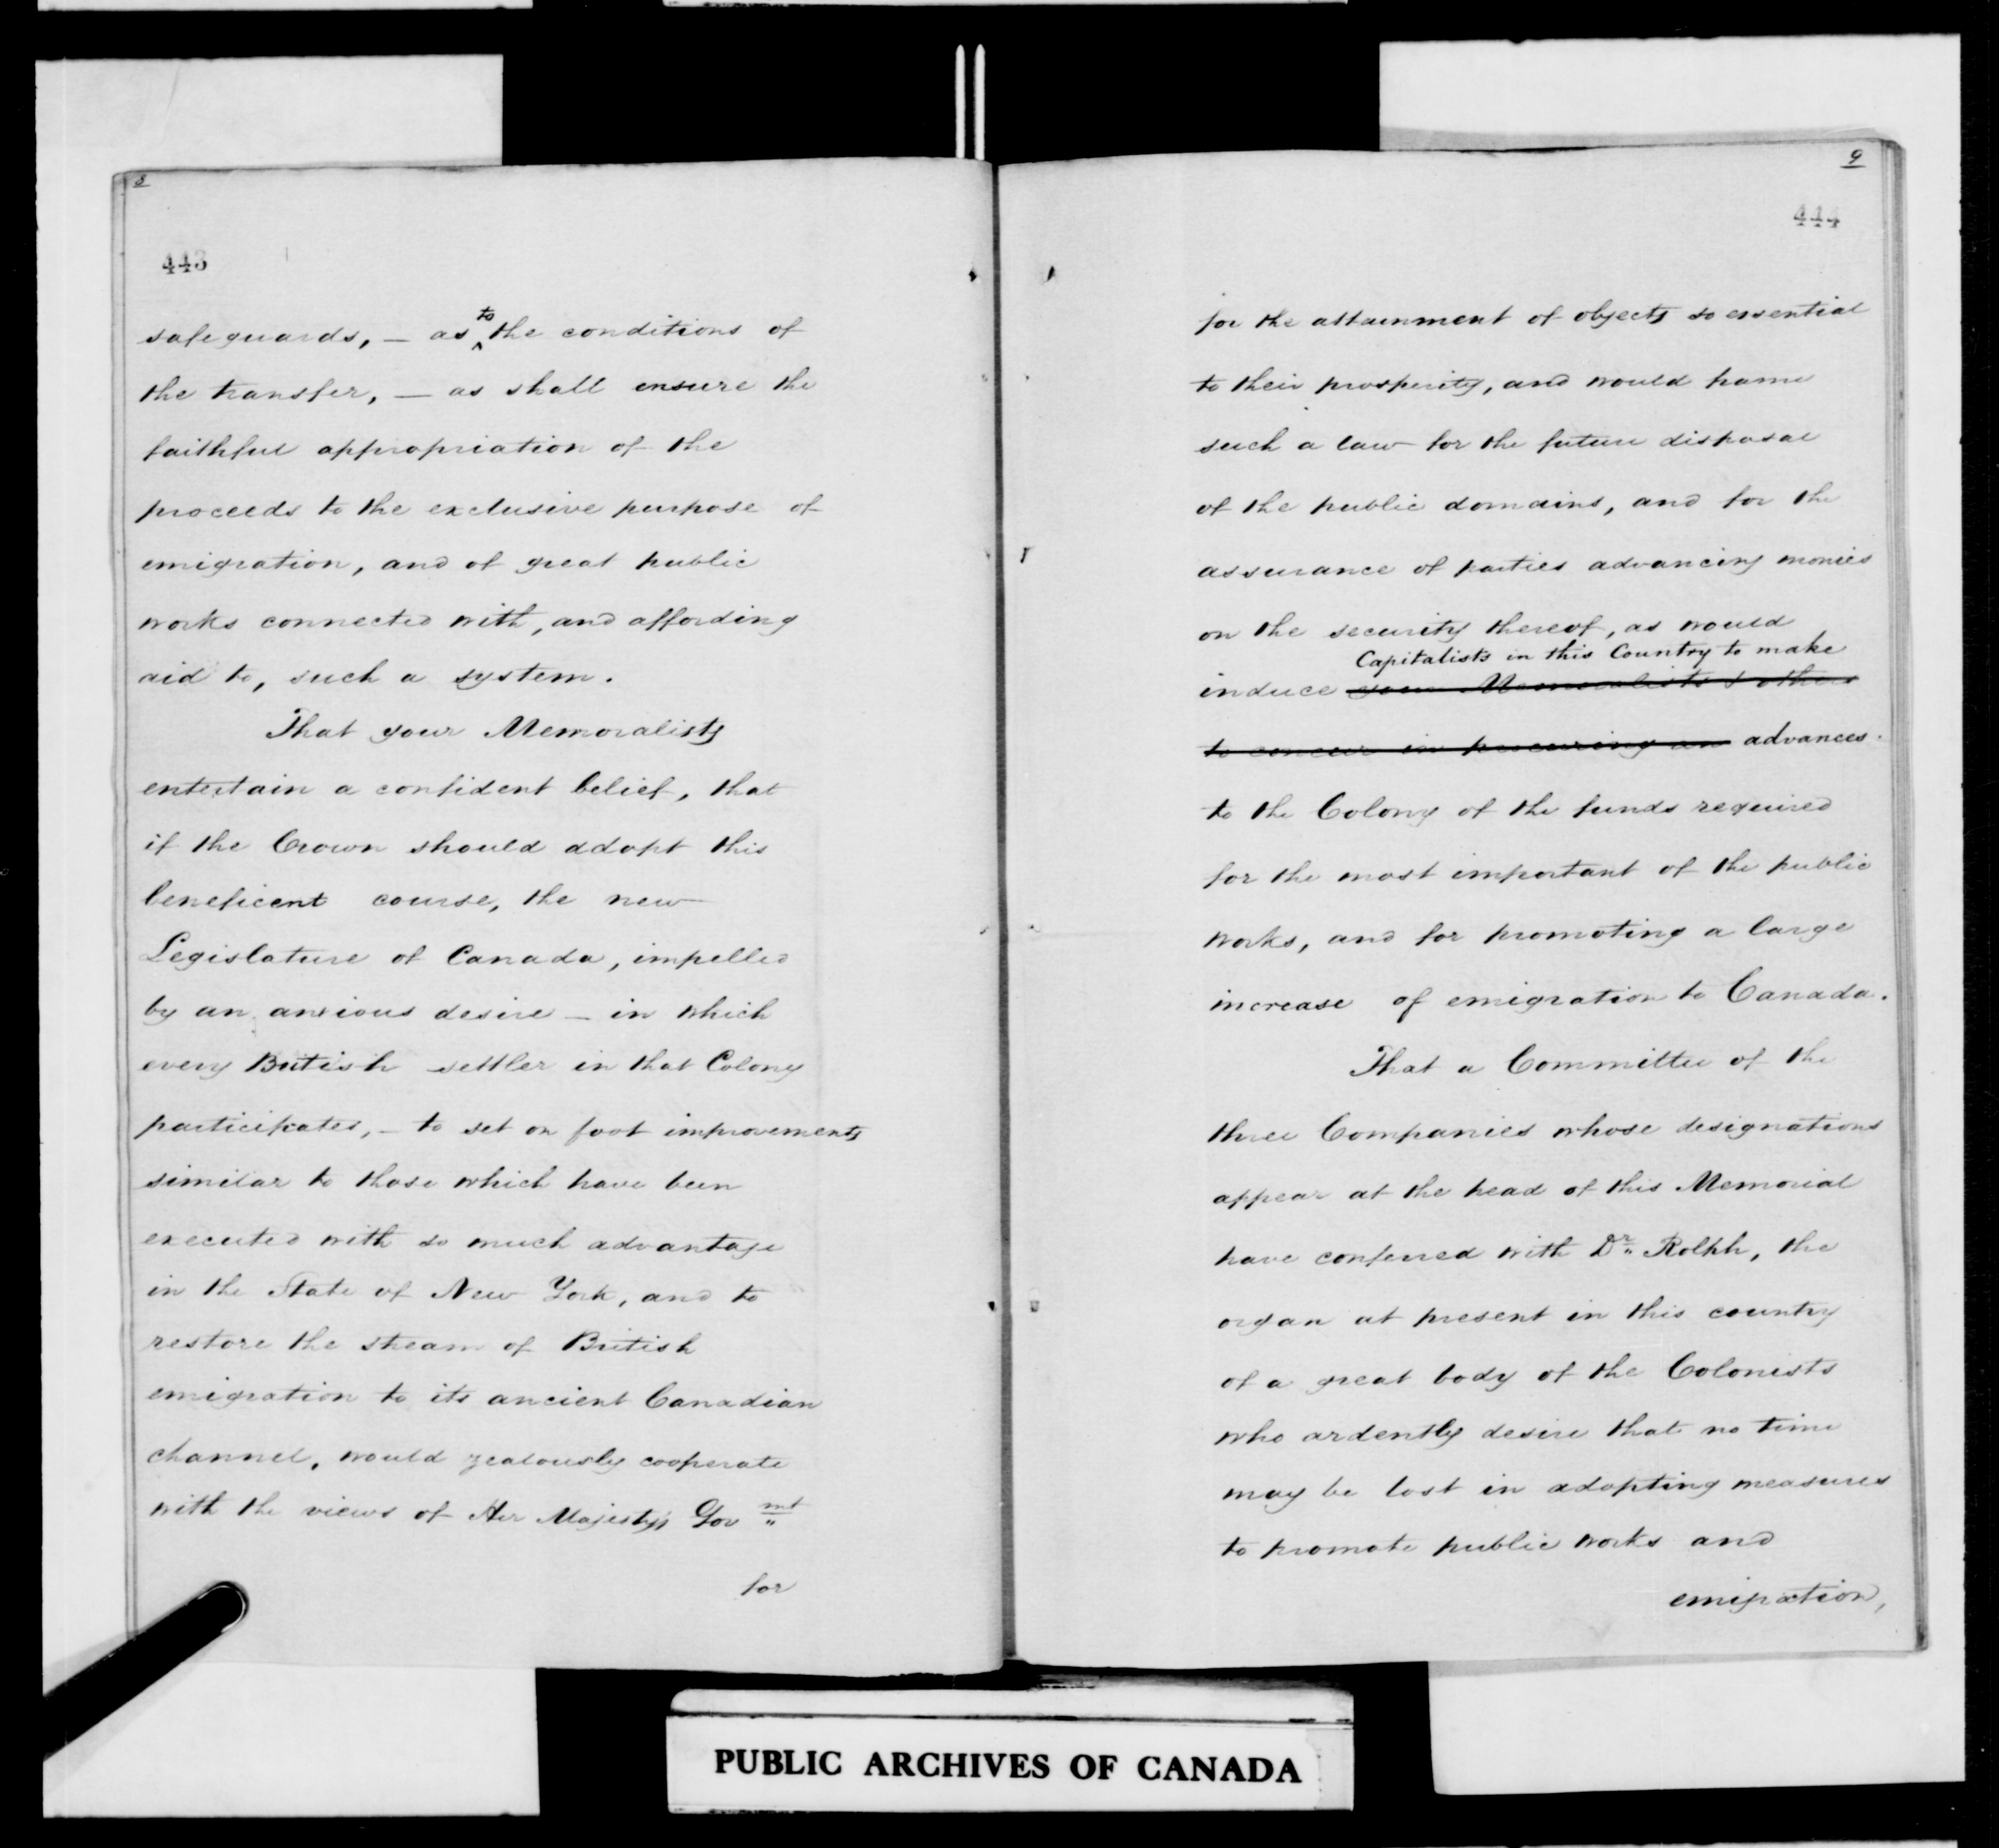 8
443
safeguards, — as to the conditions of
the transfer, — as shall ensure the
faithful appropriation of the
proceeds to the exclusive purpose of
emigration, and of great public
works connected with, and affording
aid to, such a system.
That your Memoralists
entertain a confident belief, that
if the Crown should adopt this
beneficent course, the new
Legislature of Canada, impelled
by an anxious desire — in which
every British settler in that Colony
participates, — to set on foot improvements
similar to those which have been
executed with so much advantage
in the State of New York, and to
restore the stream of British
emigration to its ancient Canadian
channel, would zealously cooperate
with the views of Her Majesty's Govmt
for
9
444
for the attainment of objects so essential
to their prosperity, and would frame
such a law for the future disposal
of the public domains, and for the
assurance of parties advancing monies
on the security thereof, as would
Capitalists in this Country to make
induce your Memoralists & others
to concur in procuring an advances
to the Colony of the funds required
for the most important of the public
works, and for promoting a large
increase of emigration to Canada.
That a Committee of the
three Companies whose designations
appear at the head of this Memorial
have conferred with Dr. Rolph, the
organ at present in this country
of a great body of the Colonists
who ardently desire that no time
may be lost in adopting measures
to promote public works and
emigration,
PUBLIC ARCHIVES OF CANADA